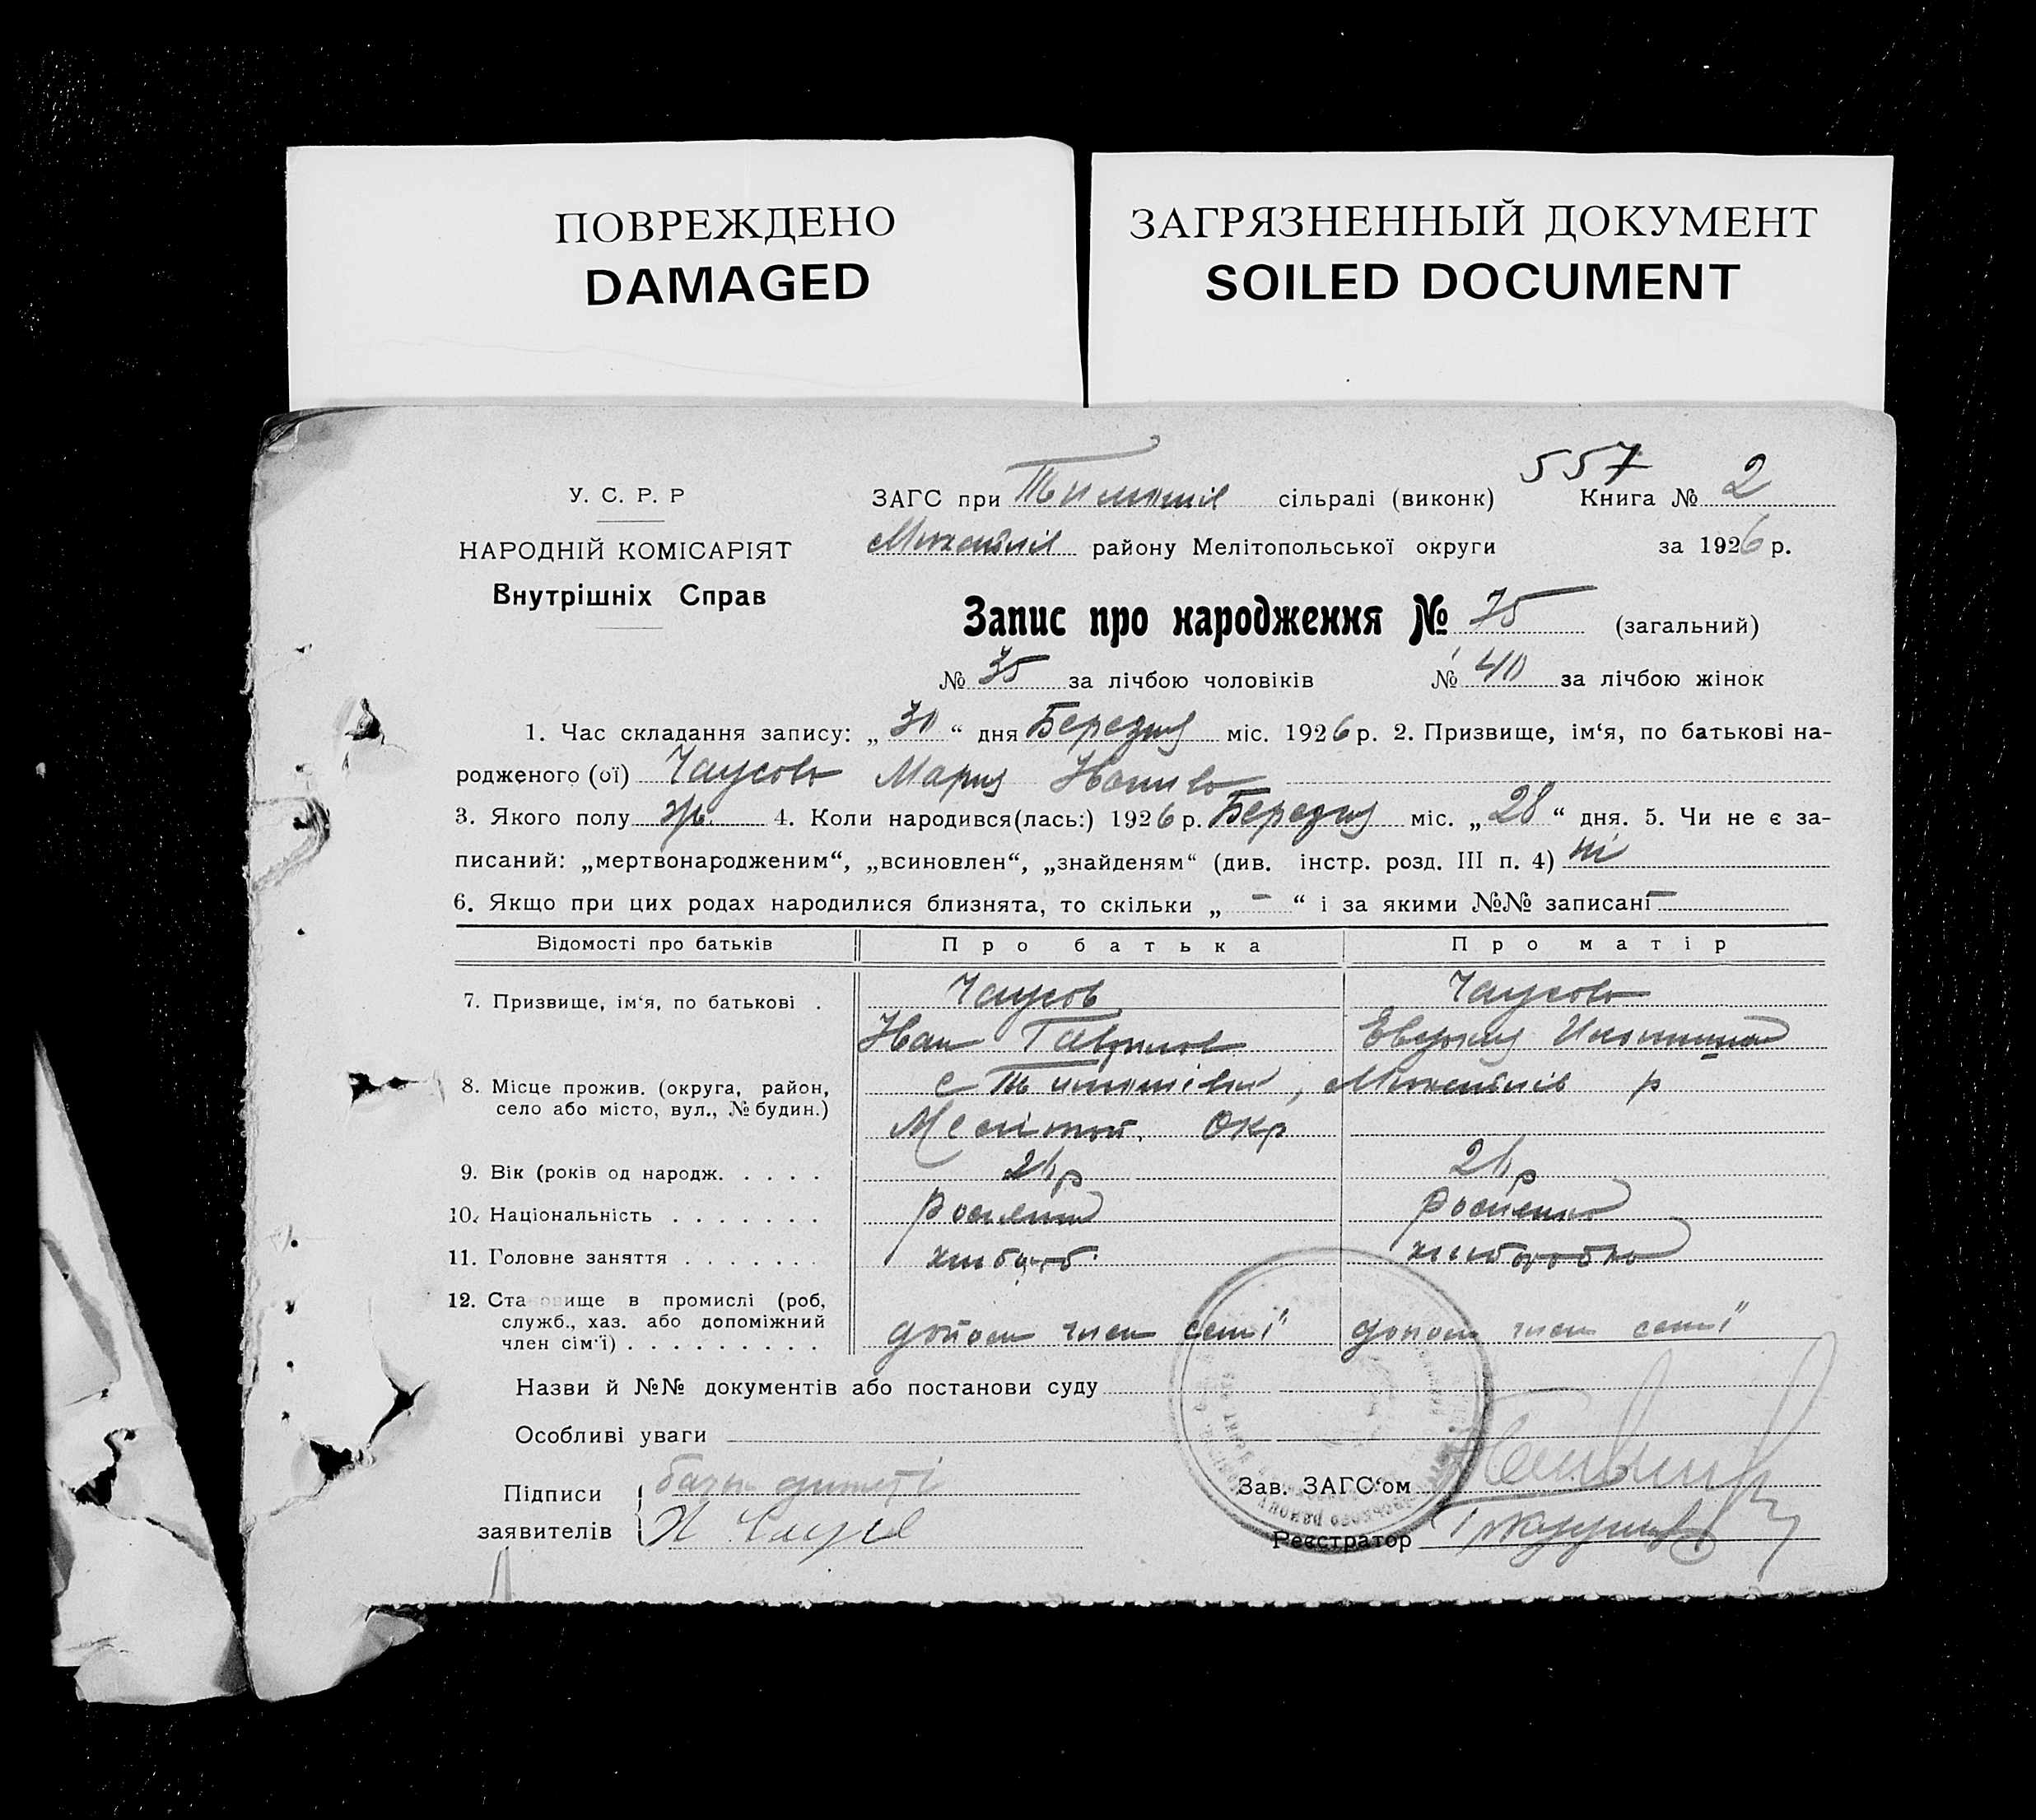 ПОВРЕЖДЕНО
DAMAGED
ЗАГРЯЗНЕННЫЙ ДОКУМЕНТ
SOILED DOCUMENT
557
У. С. Р. Р
НАРОДНІЙ КОМІСАРІЯТ
Внутрішніх Справ
ЗАГС при Тимошів сільраді (виконк) Книга № 2
Михайлів району Мелітопольської округи за 1926 р.
Запис про народження № 75 (загальний)
№ 35 за лічбою чоловіків № 40 за лічбою жінок
1. Час складання запису: „30“ дня Березня міс. 1926 р. 2. Призвище, ім‘я, по батькові на-
родженого (ої) Чаусова Мария Ивանівна
3. Якого полу ж. 4. Коли народився(лась:) 1926 р. Березня міс. „28“ дня. 5. Чи не є за-
писаний: „мертвонародженим“, „всиновлен“, „знайденям“ (див. інстр. розд. III п. 4) ні
6. Якщо при цих родах народилися близнята, то скільки „ - “ і за якими №№ записані -
Відомості про батьків Про батька Про матір
7. Призвище, ім‘я, по батькові . Чаусов Чаусова
Иван Гаврилов Евдокия
8. Місце прожив. (округа, район, село або місто, вул., № будин.) с Тимошівка, Михайлів р
Мелітоп. Окр
9. Вік (років од народж. . . . . 26 р 26 р
10. Національність . . . . . . . росіянин росіянка
11. Головне заняття . . . . . . . хлібороб хліборобка
12. Становище в промислі (роб, служб., хаз. або допоміжний член сім‘ї) . . . . . . . . . допом член семї допом член семї
Назви й №№ документів або постанови суду
Особливі уваги
Підписи заявителів батько дитяті
И Чаусов
Зав. ЗАГС‘ом
Реєстратор